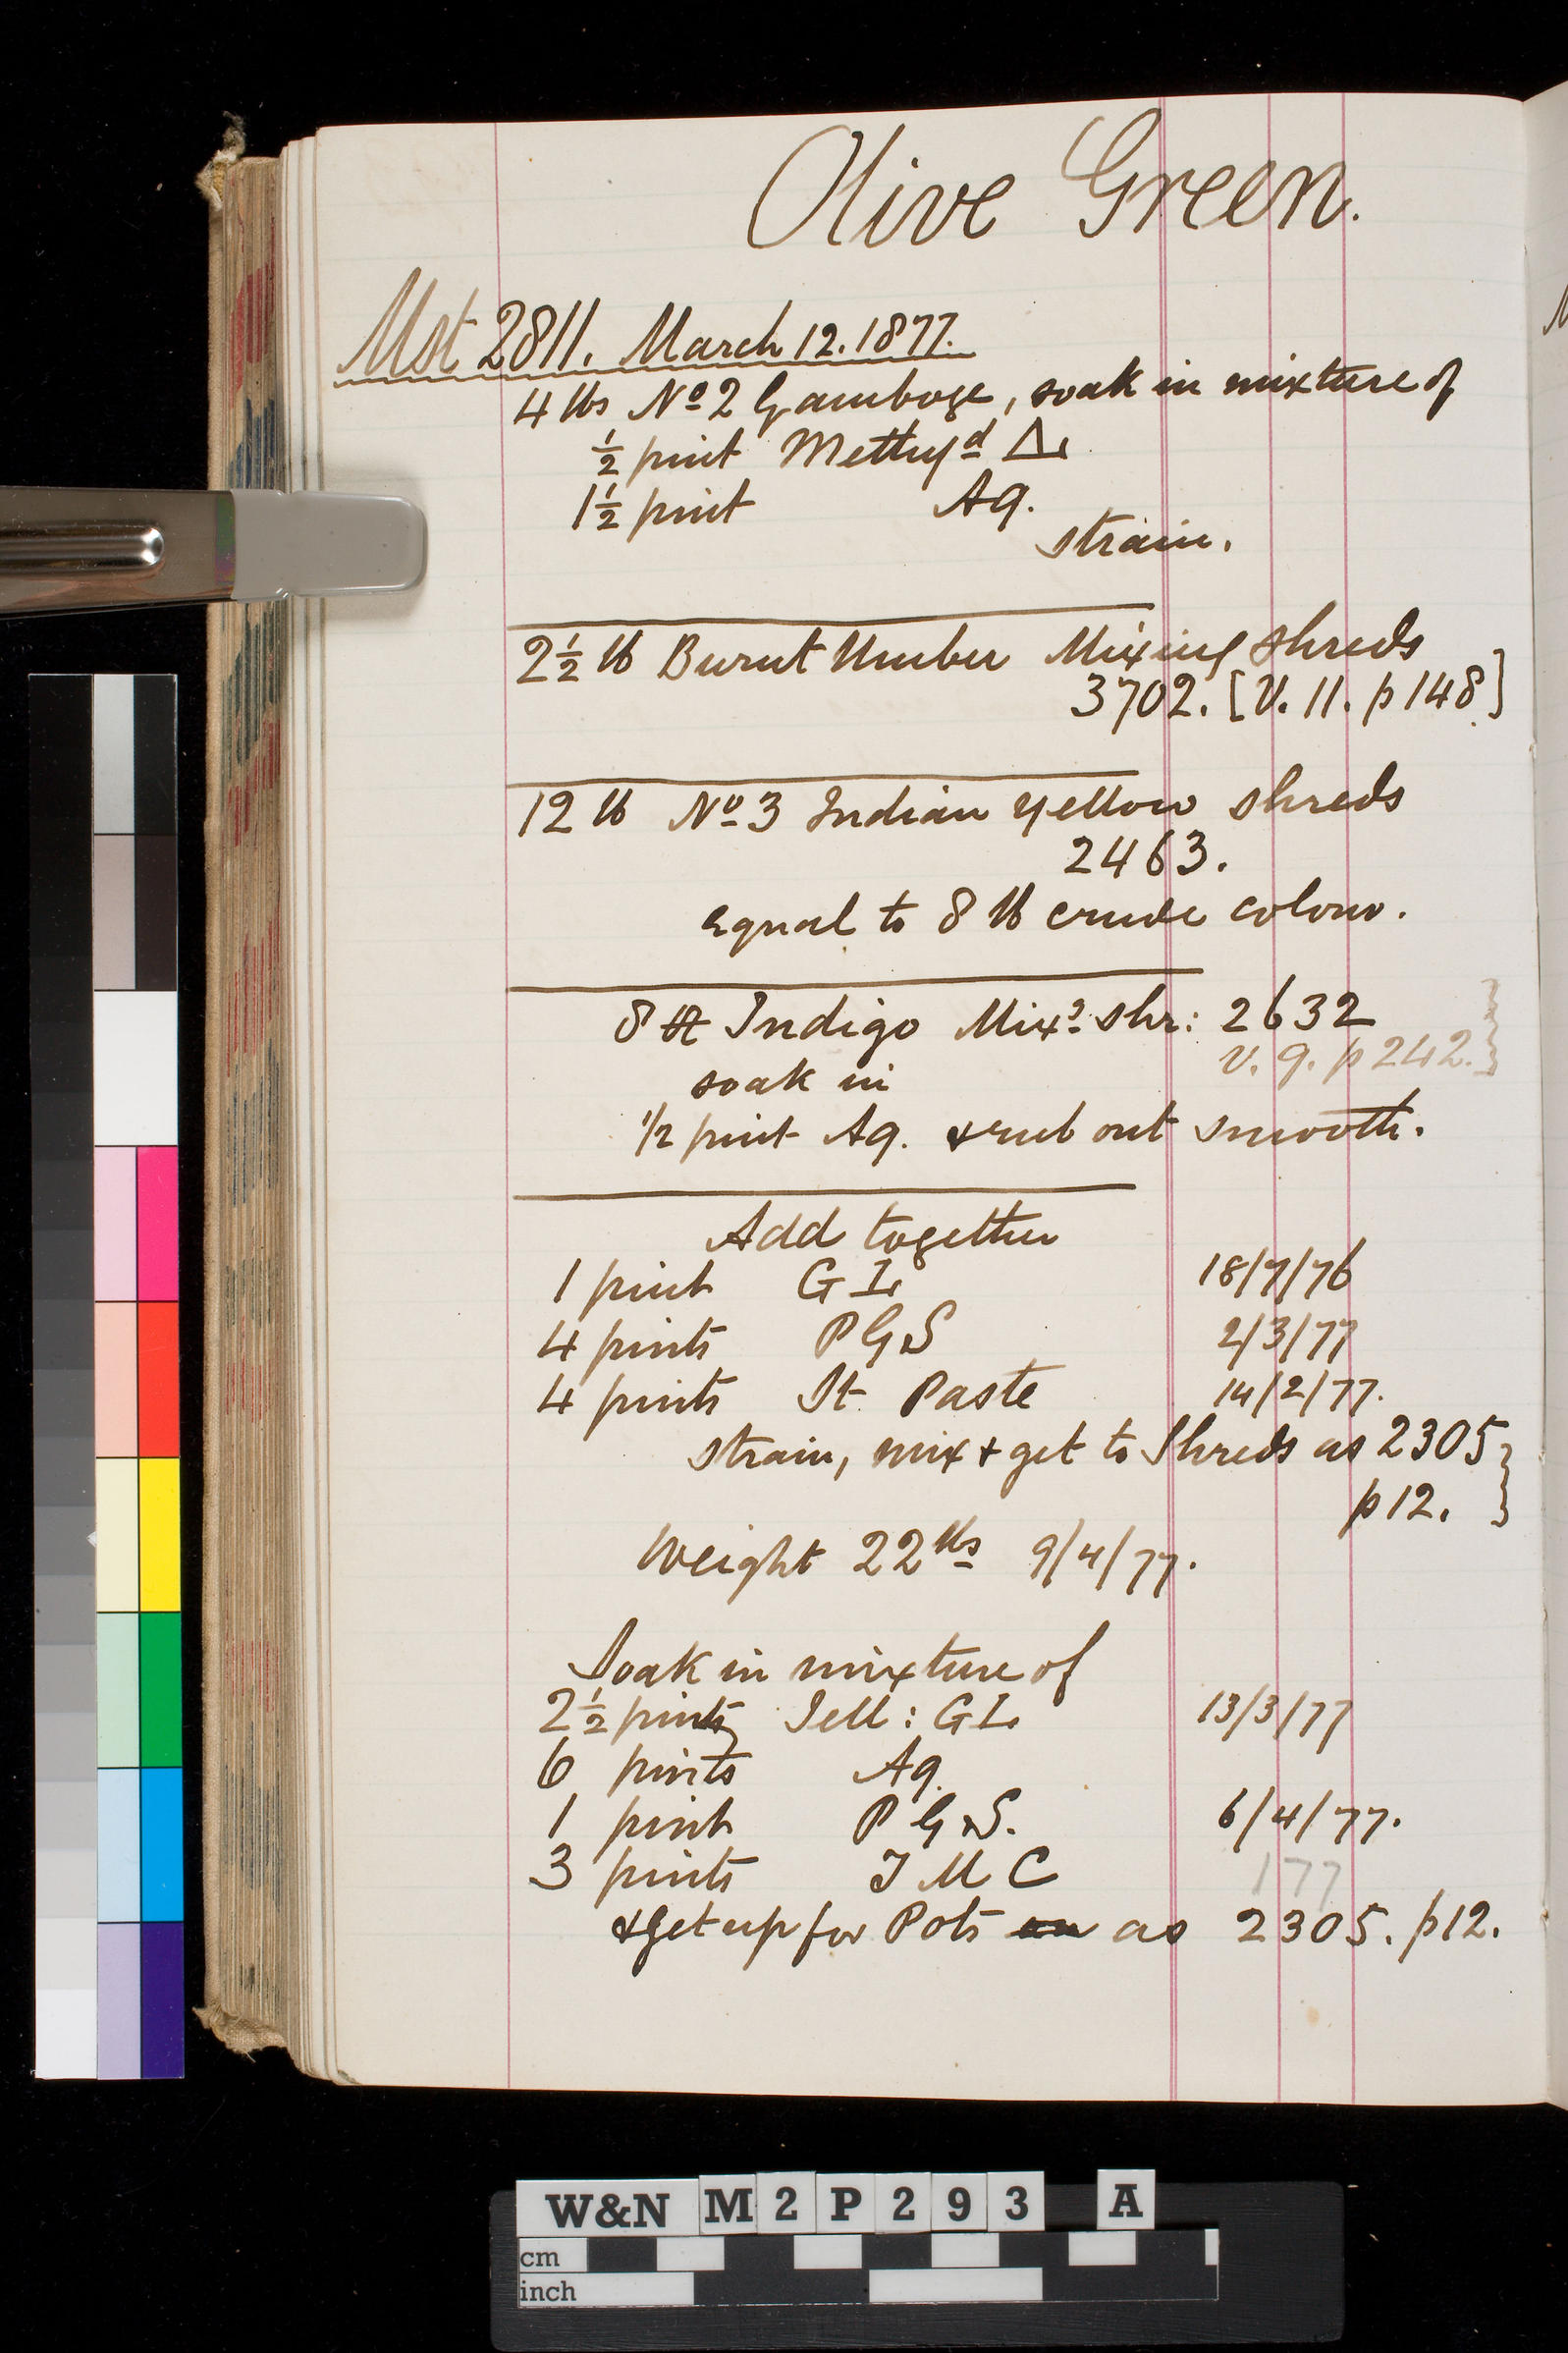 Olive Green.
Mst 2811. March 12. 1877.
4 lbs No 2 Gamboge, soak in mixture of
½ pint Methyd Δ
1½ pint Aq.
strain.
2½ lb Burnt Umber Mixing shreds
3702. [V. 11. p 148]
12 lb No 3 Indian Yellow shreds
2463.
equal to 8 lb crude colour.
8 lb Indigo Mixg shr: 2632
V. 9. p 242.}
soak in
1/2 pint Aq. & rub out smooth.
Add together
1 pint G L 18/7/76
4 pints P G S 2/3/77
4 pints St Paste 14/2/77.
strain, mix & get to Shreds as 2305
p 12. }
Weight 22 lbs 9/4/77.
Soak in mixture of
2½ pints Jell: G L 13/3/77
6 pints Aq.
1 pint P G S. 6/4/77.
3 pints J M C 177
& get up for Pots as 2305. p 12.
W&N M 2 P 2 9 3 A
cm
inch